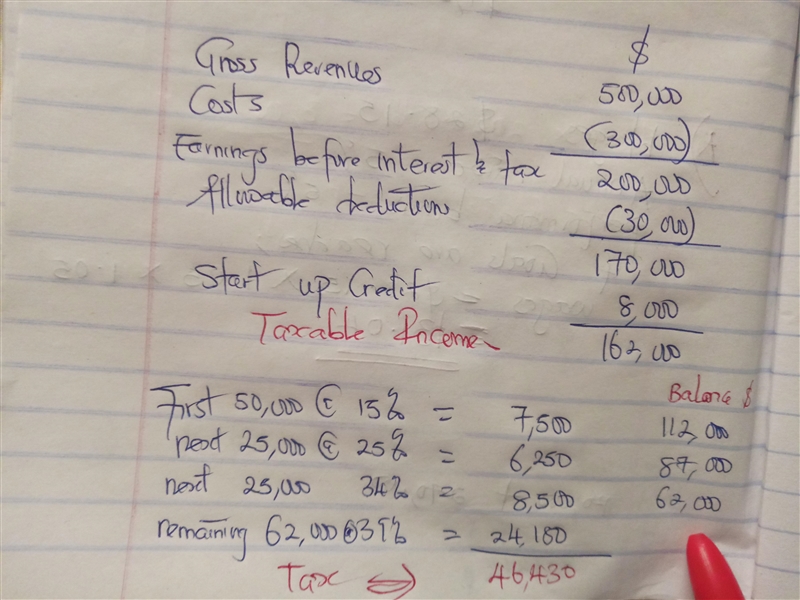 $
Gross Revenues 500,000
Costs (300,000)
Earnings before interest & tax 200,000
Allowable deductions (30,000)
170,000
Start up Credit 8,000
Taxable Income 162,000
Balance $
First 50,000 @ 15% = 7,500 112,000
next 25,000 @ 25% = 6,250 87,000
next 25,000 34% = 8,500 62,000
remaining 62,000 @ 39% = 24,180
Tax ⇔ 46,430